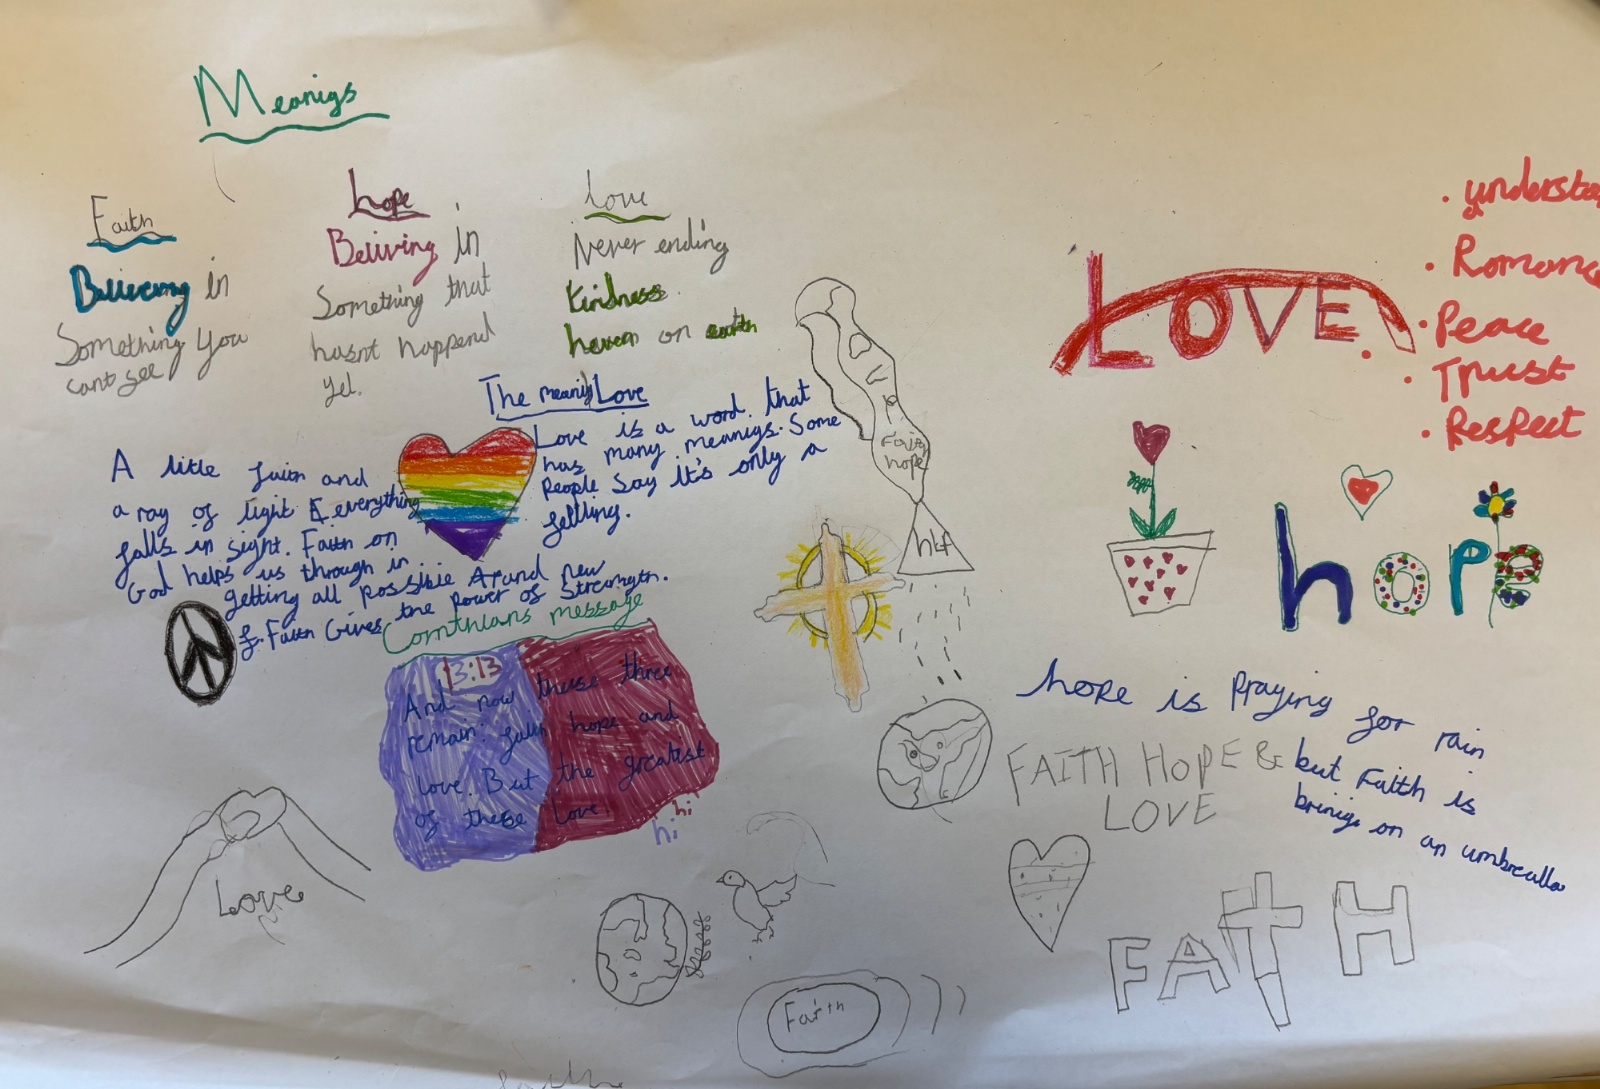 Meanigs
Faith
Belivering in
Something You
cant see
hope
Beliving in
Something that
hasnt happend
yet.
Love
Never ending
kindness
heven on earth
The meanig Love
Love is a word that
has many meanigs. Some
People Say it's only a
fellling.
A little faith and
a ray of light & everything
falls in sight. Faith on
God helps us through in
getting all possible Arund new
f. Faith Gives the power of Strength.
Corinthians message
13:13
And now these three
remain: faith hope and
love. But the greatest
of these love.
hi
hi
Love
hope
hLf
Faith
LOVE
. understa
. Romanc
. Peace
. Trust
. Respect
hope
hope is Praying for rain
but Faith is
brinig on an umbreulla
FAITH HOPE &
LOVE
FAITH
faith